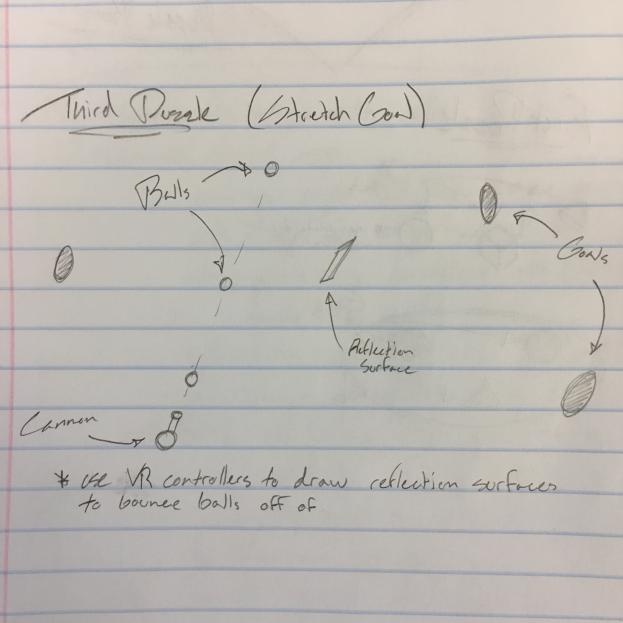 Third Puzzle (Stretch Goal)
Balls
Goals
Reflection
Surface
Cannon
* use VR controllers to draw reflection surfaces
to bounce balls off of